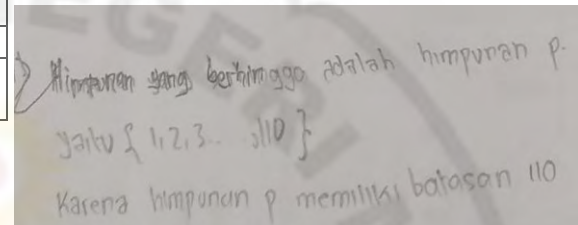 Himpunan yang berhingga adalah himpunan p.
yaitu { 1, 2, 3 . . , 110 }
Karena himpunan p memiliki batasan 110